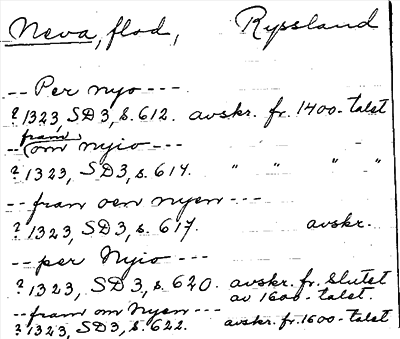 Neva, flod, Ryssland
-- Per nyo ---
? 1323 SD3, s. 612. avskr. fr. 1400-talet
fram
-- om nyio ---
? 1323, SD3, s. 614. " " " "
-- fram oen nyen ---
? 1323, SD3, s. 617. avskr.
-- per Nyio ---
? 1323, SD3, s. 620. avskr. fr. slutet
av 1600-talet.
-- fram om Nyen ---
? 1323, SD3, s. 622. avskr. fr. 1600-talet